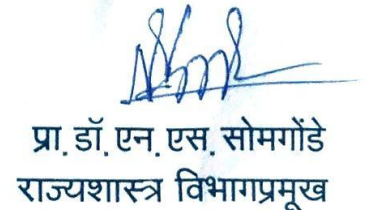 प्रा. डॉ. एन. एस. सोमगोंडे
राज्यशास्त्र विभागप्रमूख